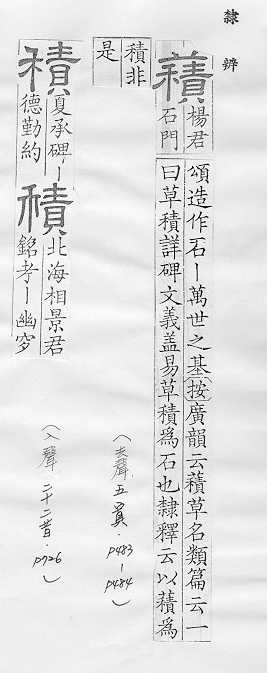 隸辨
𧂐
楊君石門
頌造作石丨萬世之基按廣韻云𧂐草名類篇云一
曰草積詳碑文義盖易草積爲石也隸釋云以𧂐爲
積非
是
積
夏承碑丨
德勤約
積
北海相景君
銘孝丨幽穸
(去聲五寘.P483-P484)
(入聲二十二昔.P726)